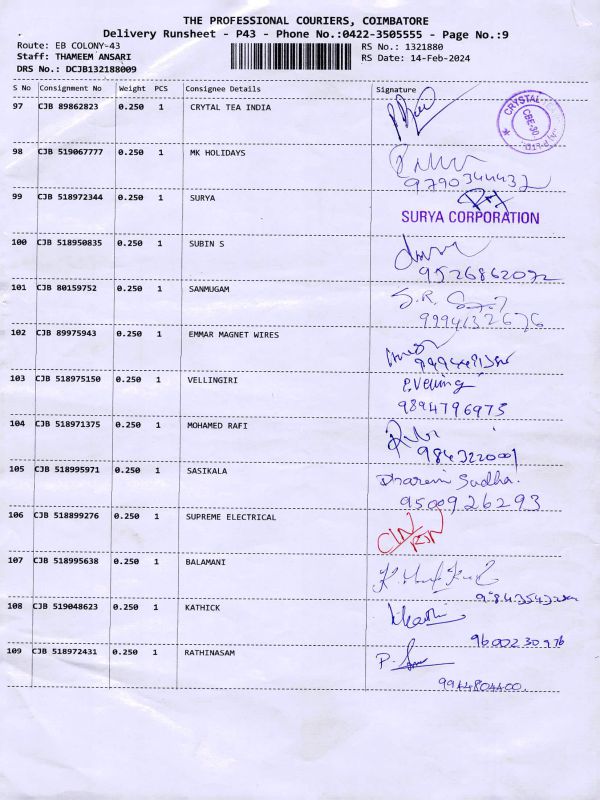 THE PROFESSIONAL COURIERS, COIMBATORE
Delivery Runsheet - P43 - Phone No.:0422-3505555 - Page No.:9
Route: EB COLONY-43 RS No.: 1321880
Staff: THAMEEM ANSARI RS Date: 14-Feb-2024
DRS No.: DCJB132188009
S No Consignment No Weight PCS Consignee Details Signature
97 CJB 89862823 0.250 1 CRYTAL TEA INDIA
CRYSTAL
CBE-30
98 CJB 519067777 0.250 1 MK HOLIDAYS
9790344432
99 CJB 518972344 0.250 1 SURYA
SURYA CORPORATION
100 CJB 518950835 0.250 1 SUBIN S
9526862072
101 CJB 80159752 0.250 1 SANMUGAM
S.R.
9994132676
102 CJB 89975943 0.250 1 EMMAR MAGNET WIRES
103 CJB 518975150 0.250 1 VELLINGIRI
9894796975
104 CJB 518971375 0.250 1 MOHAMED RAFI
9843220001
105 CJB 518995971 0.250 1 SASIKALA
Dharani Sudha.
9500926293
106 CJB 518899276 0.250 1 SUPREME ELECTRICAL
107 CJB 518995638 0.250 1 BALAMANI
108 CJB 519048623 0.250 1 KATHICK
9600230976
109 CJB 518972431 0.250 1 RATHINASAM
P.
9944804400.